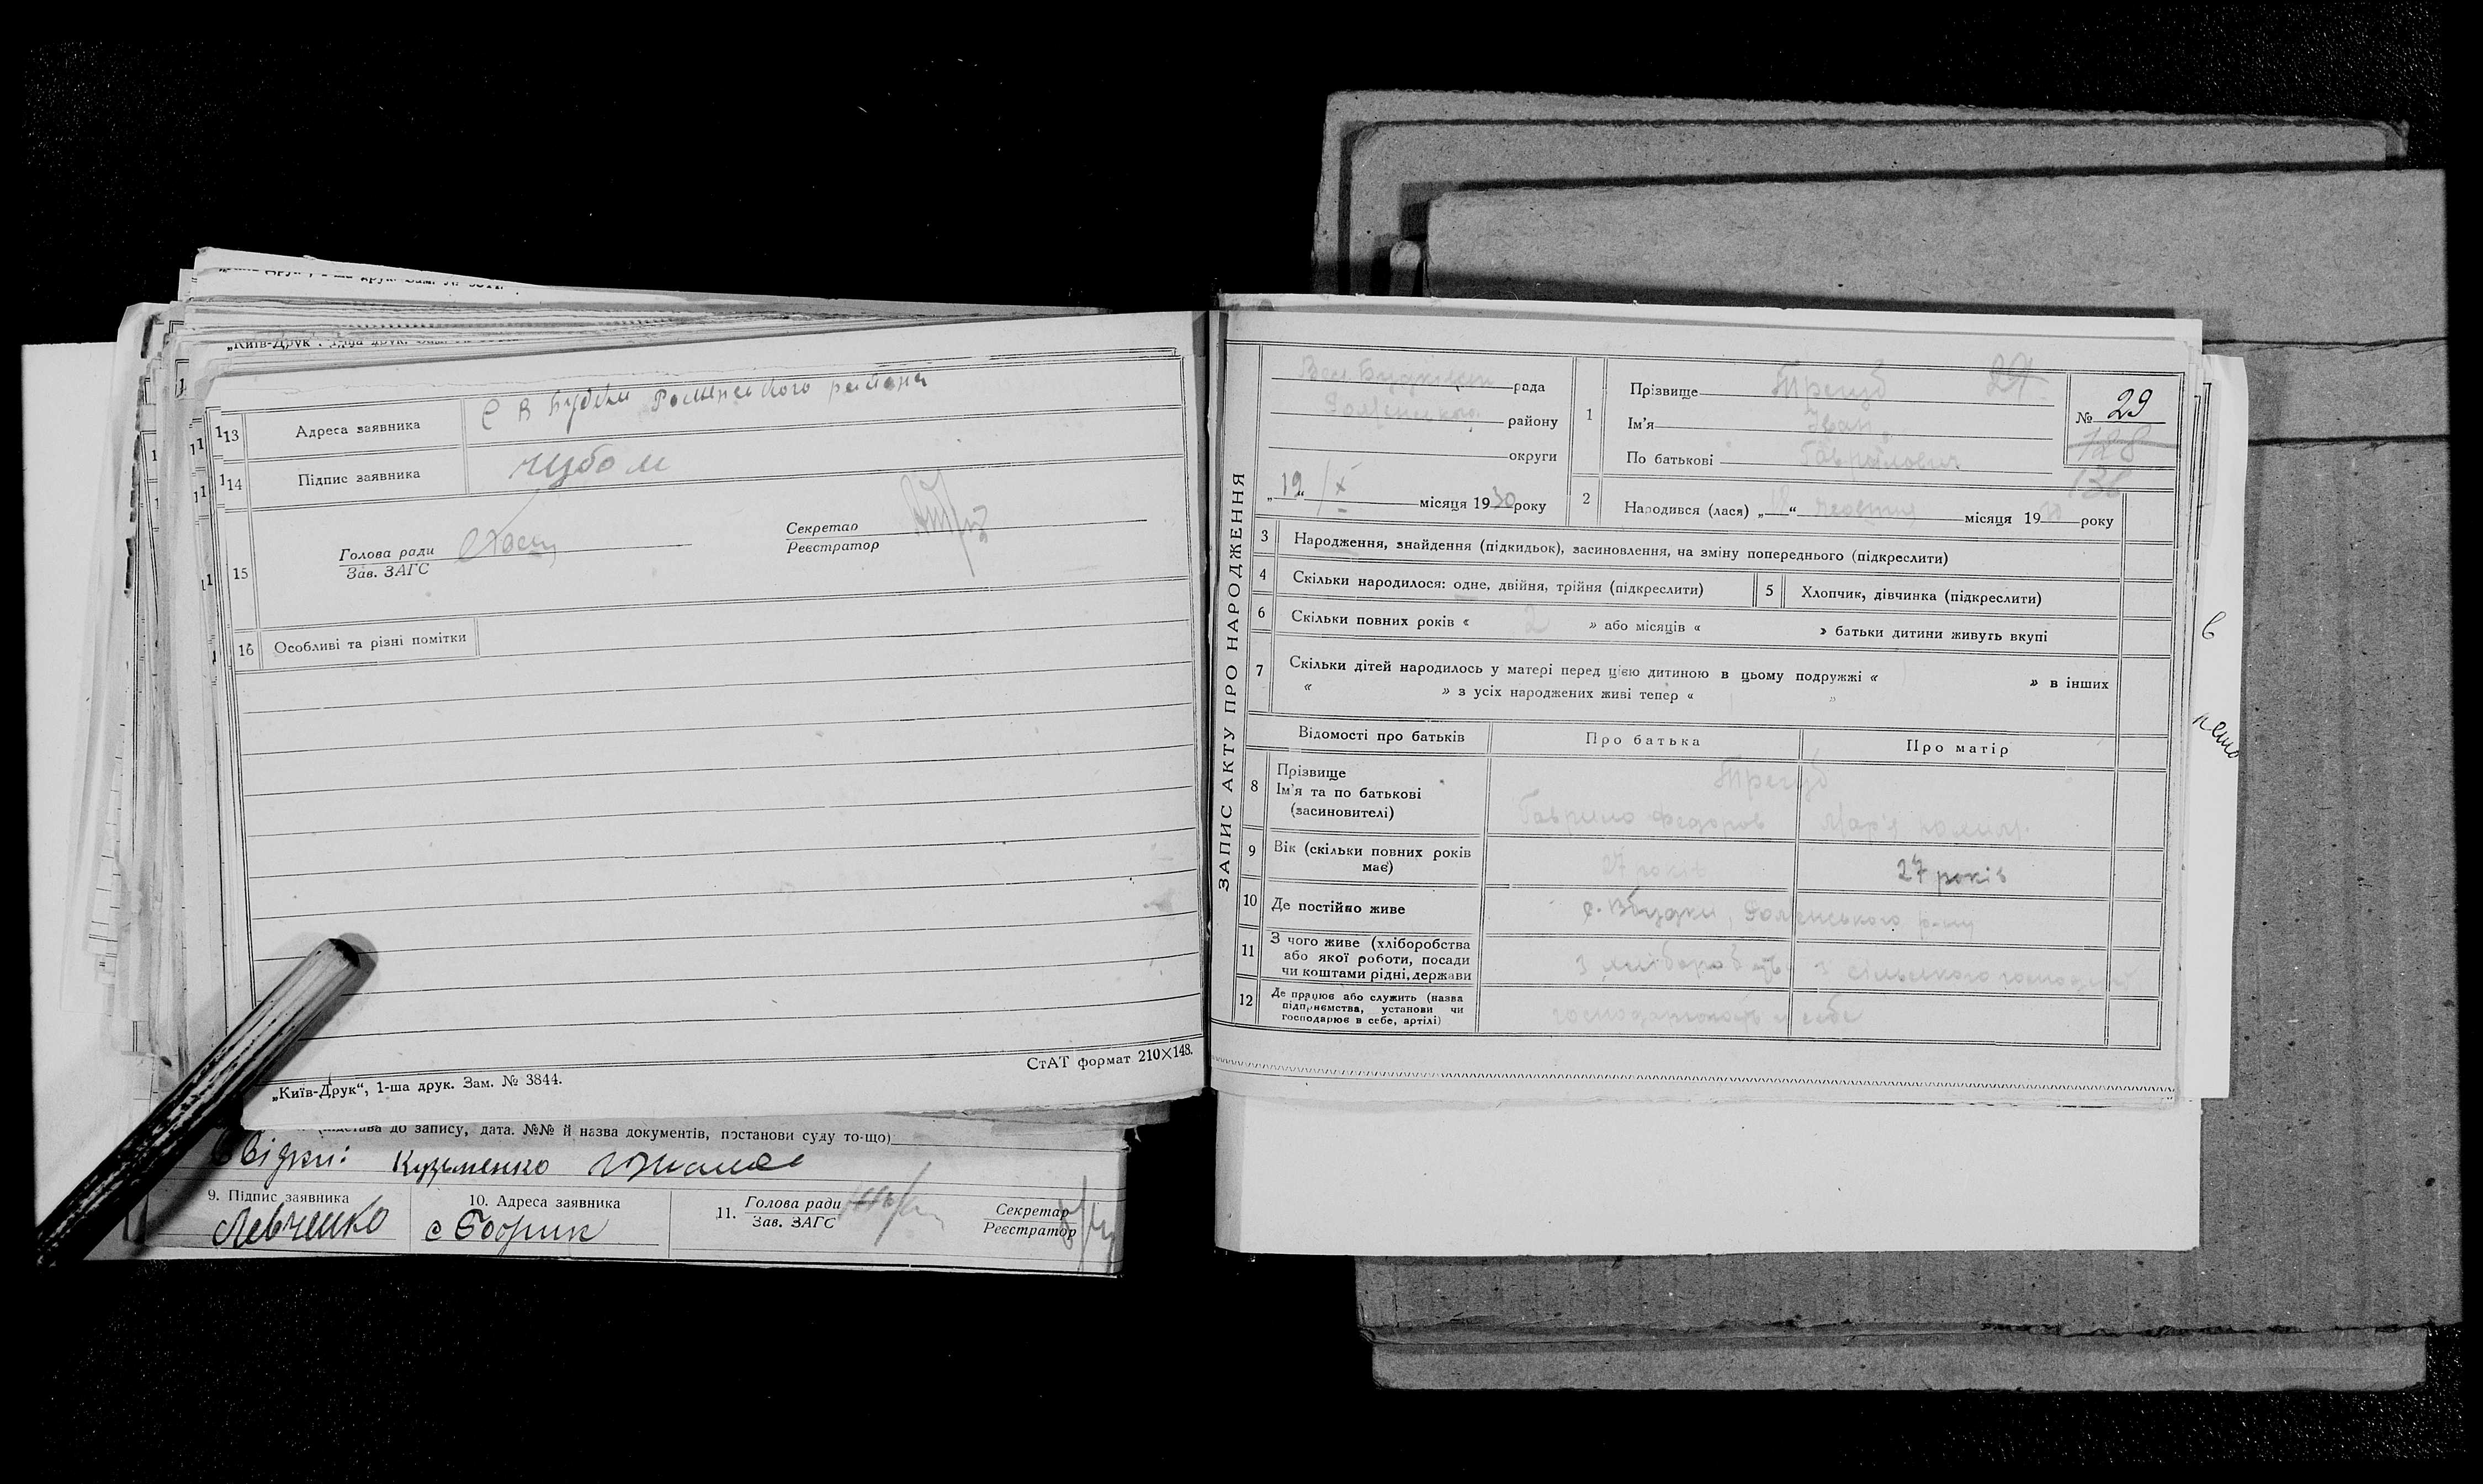 „Київ-Друк", 1-ша друк. Зам.
13 Адреса заявника С В Бубки Роменського района
14 Підпис заявника Чубом
15 Голова ради Зав. ЗАГС
Секретар Реєстратор
16 Особливі та різні помітки
„Київ-Друк“, 1-ша друк. Зам. № 3844.
СтАТ формат 210×148.
до запису, дата. №№ й назва документів, постанови суду то-що)
Свідки: Кузьменко
9. Підпис заявника Левченко
10. Адреса заявника с
11. Голова ради Зав. ЗАГС
Секретар Реєстратор
ЗАПИС АКТУ ПРО НАРОДЖЕННЯ
рада
Роменського району
округи
„19“ X місяця 1930 року
1 Прізвище Трегуб 29
Ім'я Іван
По батькові Гаврилович
№ 29
128
138
2 Народився (лася) „18“ місяця 19 року
3 Народження, знайдення (підкидьок), засиновлення, на зміну попереднього (підкреслити)
4 Скільки народилося: одне, двійня, трійня (підкреслити)
5 Хлопчик, дівчинка (підкреслити)
6 Скільки повних років « 2 » або місяців « » батьки дитини живуть вкупі
7 Скільки дітей народилось у матері перед цією дитиною в цьому подружжі « » в інших
« » з усіх народжених живі тепер « »
Відомості про батьків
Про батька
Про матір
8 Прізвище
Ім'я та по батькові
(засиновителі)
Трегуб
Гаврило Федоров
Мар'я
9 Вік (скільки повних років
має)
27 років
27 років
10 Де постійно живе
с. Вбудки, Роменського р-ну
11 З чого живе (хліборобства
або якої роботи, посади
чи коштами рідні, держави
з
з сільського господ
12 Де працює або служить (назва
підприємства, установи чи
господарює в себе, артілі)
господарюють в себе